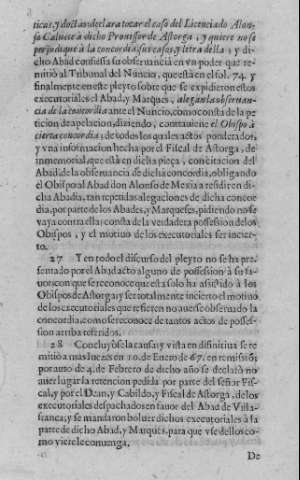 ticos, y doctas declara tocar el caso del Licenciado Alon-
so Caluete à dicho Prouisor de Astorga, y quiere no se
perjudique à la concordia, sus casos, y letra della; y di-
cho Abad confiessa su obseruancia en vn poder que re-
mitiò al Tribunal del Nuncio, que està en el fol. 74. y
finalmente en este pleyto sobre que se expidieron estos
executoriales el Abad, y Marques, alegan la obseruan-
cia de la concordia ante el Nuncio, como consta de la pe-
ticion de apelacion, diziendo, contrauiene el Obispo à
cierta concordia; de todos los quales actos ponderados,
y vna informacion hecha por el Fiscal de Astorga, de
inmemorial, que està en dicha pieça, con citacion del
Abad, de la obseruancia de dicha concordia, obligando
el Obispo al Abad don Alonso de Mexia a residir en di-
cha Abadia, tan repetidas alegaciones de dicha concor-
dia, por parte de los Abades, y Marqueses, pidiendo no se
vaya contra ella: consta de la verdadera possession de los
Obispos, y el motiuo de los executoriales ser incier-
to.
27 Y en todo el discurso del pleyto no se ha pre-
sentado por el Abad acto alguno de possession à su fa-
uor: con que se reconoce que esta solo ha assistido à los
Obispos de Astorga: y ser totalmente incierto el motiuo
de los executoriales que refieren no auerse obseruado la
concordia, como se reconoce de tantos actos de posses-
sion arriba referidos.
28 Concluyòse la causa: y vista en difinitiua se re-
mitiò a mas luezes en 10. de Enero de 67. en remission
por auto de 4. de Febrero de dicho año se declarò no
auer lugar la retencion pedida por parte del señor Fis-
cal, y por el Dean, y Cabildo, y Fiscal de Astorga, de los
executoriales despachados en fauor del Abad de Villa-
franca, y se mandaron boluer dichos executoriales à la
parte de dicho Abad, y Marques, para que vse dellos co-
mo viere le conuenga,
De